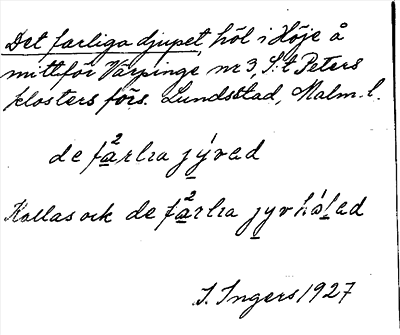 Det farliga djupet, höl i Höje å
mittför Värpinge nr 3, S:t Peters
klosters förs. Lundsstad, Malm. l.
de fa²rlıa jývad
Kallas ock de fa²rlıa jyvhålad
I. Ingers 1927